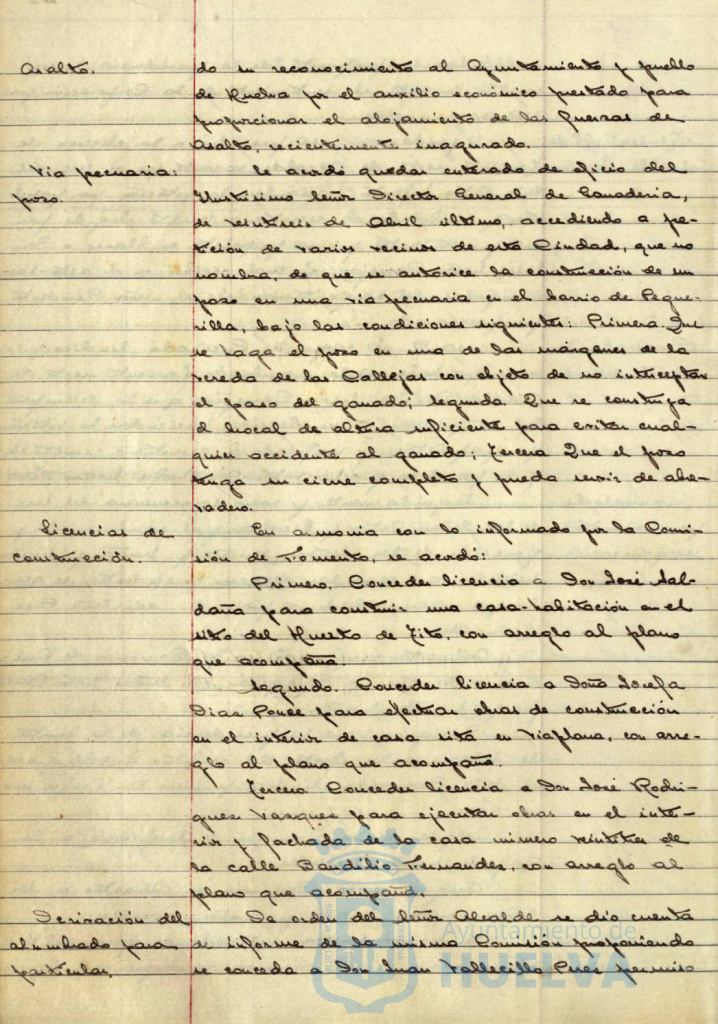 Asalto.
do su reconocimiento al Ayuntamiento y pueblo
de Huelva por el auxilio económico prestado para
proporcionar el alojamiento de las fuerzas de
Asalto, recientemente inagurado.
Via pecuaria:
pozo.
Se acordó quedar enterado de oficio del
Ilustrisimo Señor Director General de Ganaderia,
de veintiseis de Abril último, accediendo a pe-
tición de varios vecinos de esta Ciudad, que no
nombra, de que se autorice la construcción de un
pozo en una via pecuaria en el barrio de Pegue-
rilla, bajo las condiciones siguientes: Primera. Que
se haga el pozo en una de las márgenes de la
vereda de las Callejas con objeto de no interceptar
el paso del ganado; Segunda Que se construya
el brocal de altura suficiente para evitar cual-
quier accidente al ganado; Tercera Que el pozo
tenga su cierre completo y pueda servir de abre-
vadero.
Licencias de
construcción.
En armonia con lo informado por la Comi-
sión de Fomento, se acordó:
Primero. Conceder licencia a Don José Sal-
daña para construir una casa-habitación en el
sitio del Huerto de Tito, con arreglo al plano
que acompaña.
Segundo. Conceder licencia a Doña Josefa
Diaz Ponce para efectuar obras de construcción
en el interior de casa sita en Viaplana, con arre-
glo al plano que acompaña.
Tercero. Conceder licencia a Don José Rodri-
guez Vazquez para ejecutar obras en el inte-
rior y fachada de la casa número veintitres de
la calle Baudilio Fernandez, con arreglo al
plano que acompaña.
Derivación del
alumbrado para
particular.
De orden del Señor Alcalde se dio cuenta
de informe de la misma Comisión proponiendo
se conceda a Don Juan Vallecillo Perez permiso
Ayuntamiento de
HUELVA